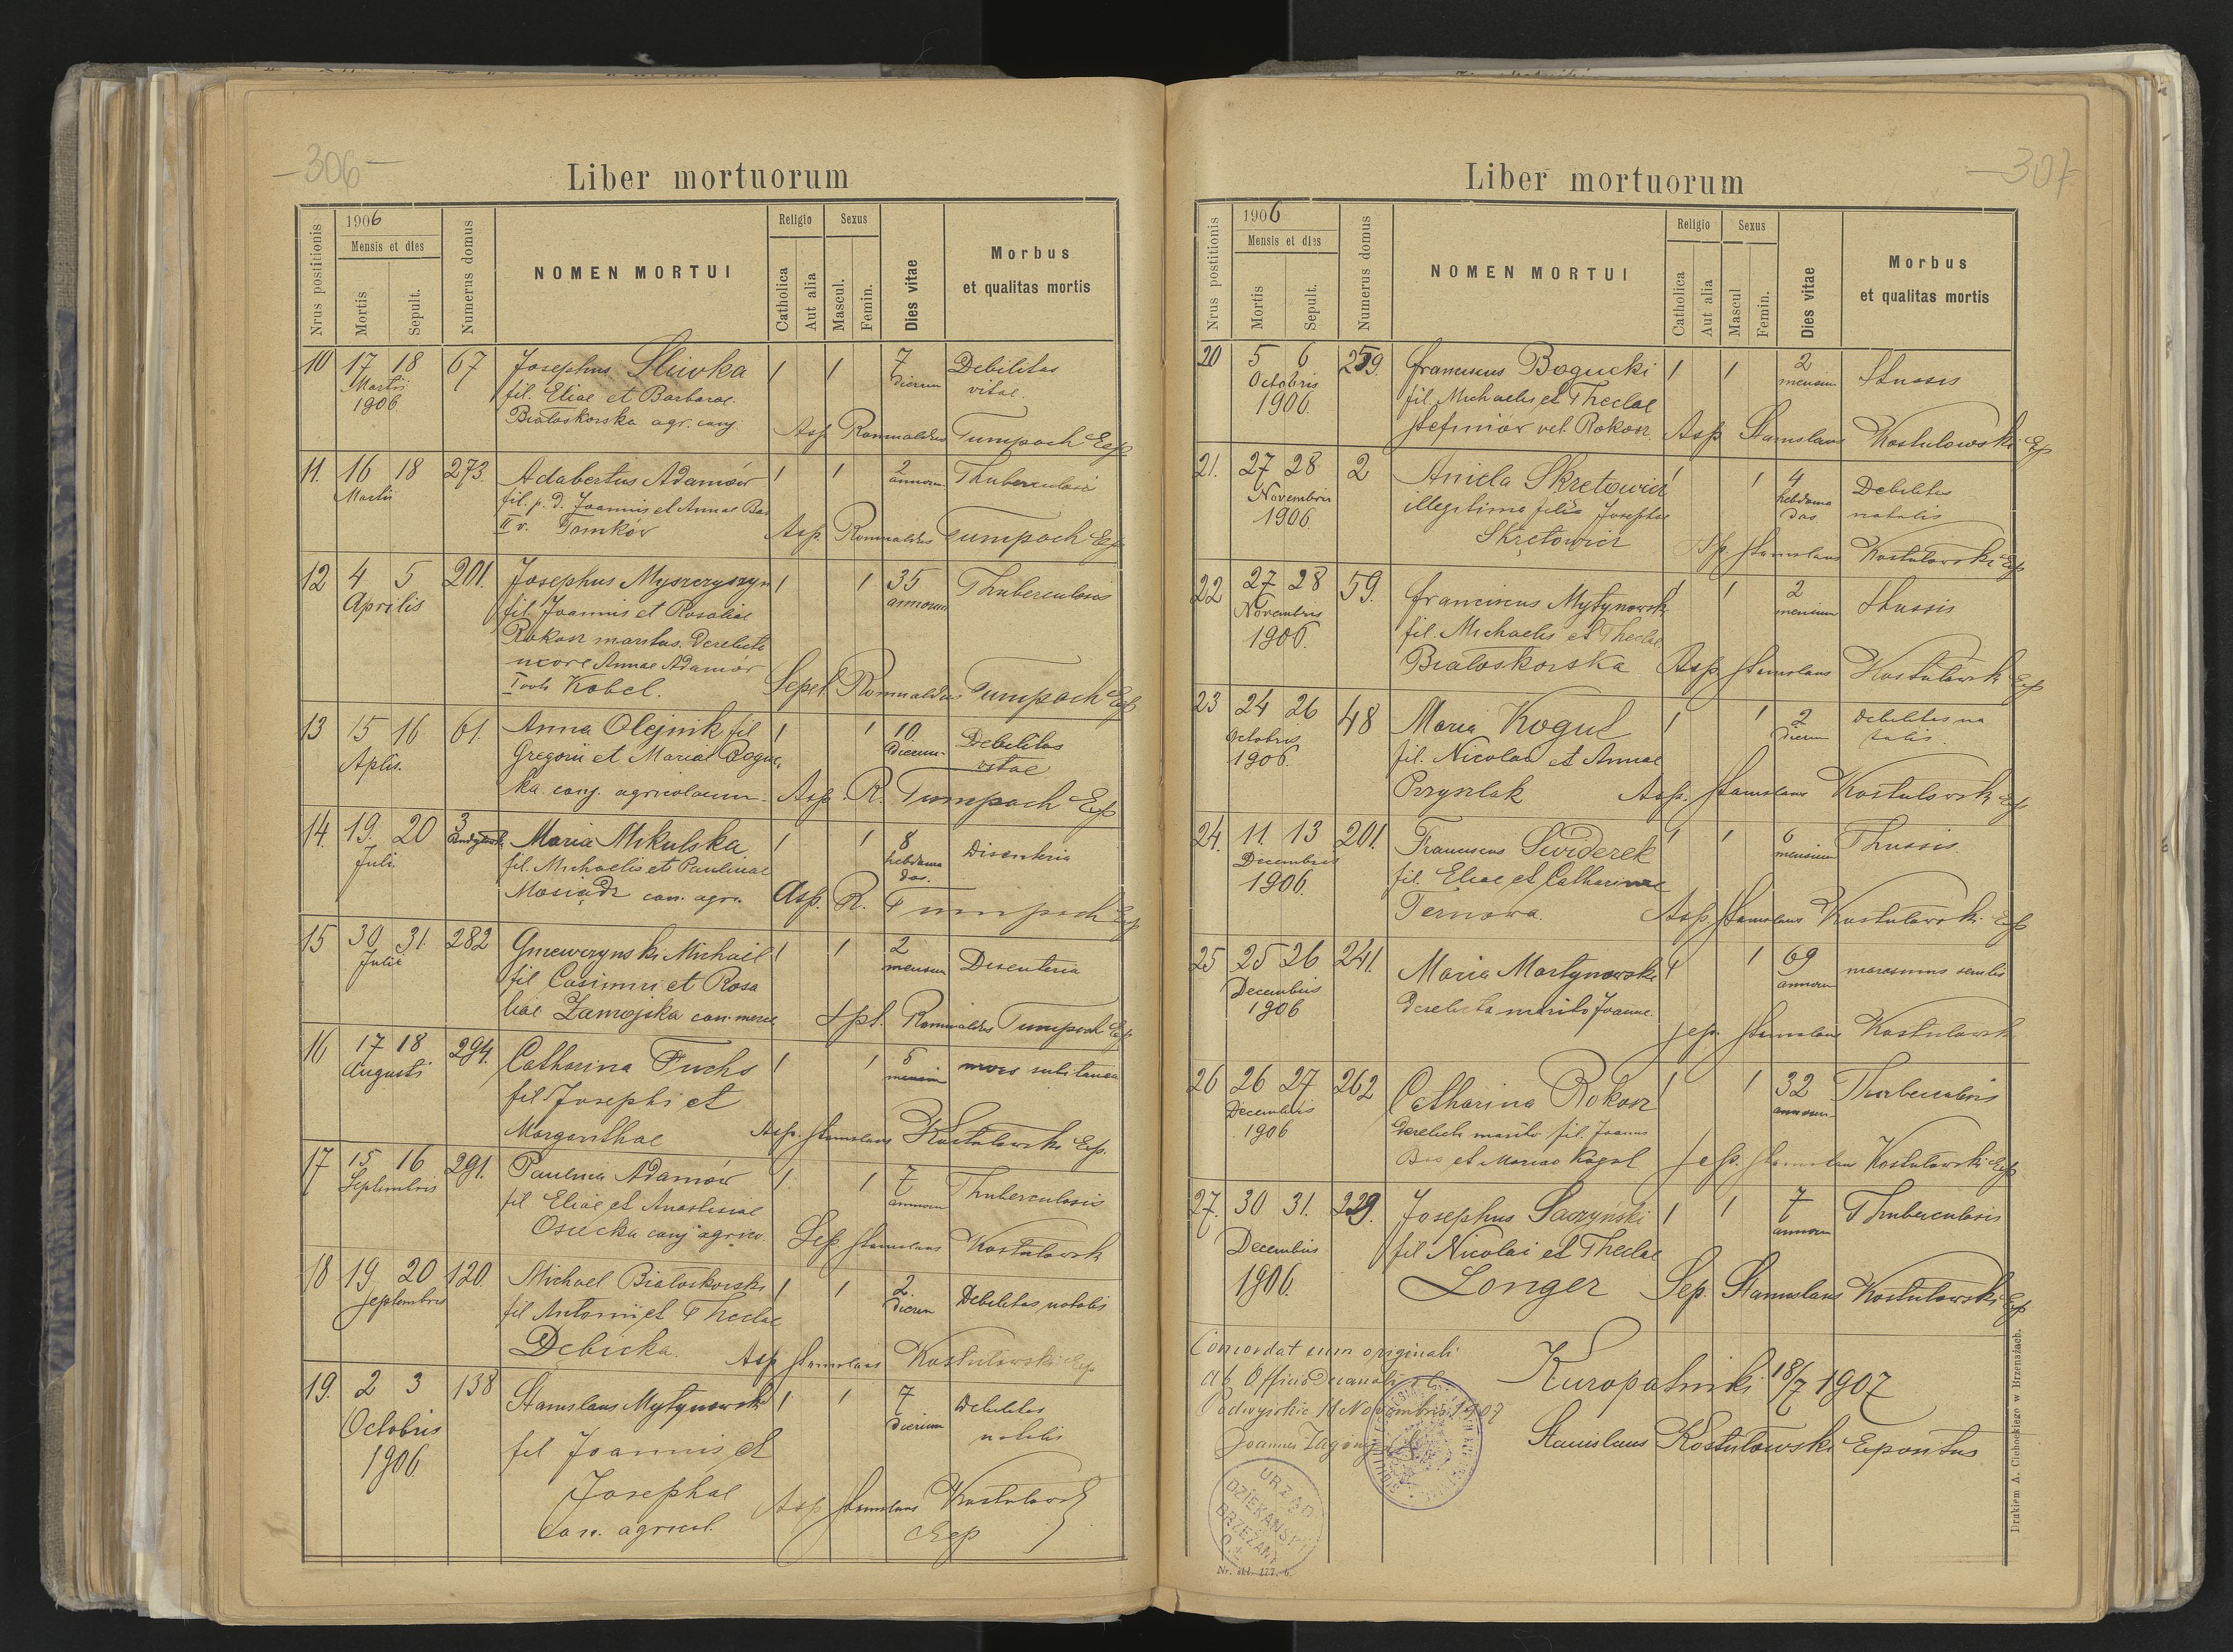 -306-
Liber mortuorum
Nrus postitionis
1906
Mensis et dies
Mortis
Sepult.
Numerus domus
NOMEN MORTUI
Religio
Catholica
Aut alia
Sexus
Mascul.
Femin.
Dies vitae
Morbus
et qualitas mortis
10 17 18 67 Josephus Sliwka 1 1 7 Debilitas
Martii fil. Eliae et Barbarae dierum vitae.
1906 Białoskorska agr. conj. Asp. Romualdus Tumpach Exp
11. 16 18 273. Adabertus Adamów 1 1 2 Thuberculosis
Martii fil. p. d. Joannis et Annae Bas annorum
II v. Tomków Asp. Romualdus Tumpach Exp
12 4 5 201. Josephus Myszczyszyn 1 1 35 Thuberculosis
Aprilis fil. Joannis et Rosaliae annorum
Rokosz maritus. derelicta
uxore Annae Adamór
I voto Kobel. Sepel. Romualdus Tumpach Exp
13 15 16 61. Anna Olejnik fil 1 1 10. Debilitas
Aplis. Gregorii et Mariae Bogu. dierum vitae
ka. conj. agricolarum. Asp. R. Tumpach Exp
14. 19. 20 3 Maria Mikulska 1 1 8 Disenteria
Juli fil. Michaelis et Paulinae hebdoma
Mosiądz con. agr. das. Asp. R. Tumpach Exp
15 30 31. 282 Gniewczynski Michael 1 1 2 Disenteria
Julii fil Casimiri et Rosa mensium
liae Zamojska con. merc Spl. Romualdus Tumpach Exp
16 17 18 294. Catharina Fuchs 1 1 5 mors subitanea
Augusti fil Josephi et mensium
Margarithae Asp. Stanislaus Kostulowski Exp.
17 15 16 291. Paulina Adamów 1. 1 7 Thuberculosis
Septembris fil Eliae et Anastasiae annorum
Osiecka conj agrico. Sep Stanislaus Kostulowski
18 19 20 120. Michael Białoskorski 1 1 2. Debilitas natalis
Septembris fil Antonii et Theclae dierum
Dębicka. Asp Stanislaus Kostulowski Exp
19. 2 3 138 Stanislaus Mytynowski 1 1 7 Debilitas
Octobris fil Joannis et dierum natalis
1906. Josephae Asp Stanislaus Kostulowski
con. agricol. Exp
-307-
Liber mortuorum
Nrus postitionis
1906
Mensis et dies
Mortis
Sepult.
Numerus domus
NOMEN MORTUI
Religio
Catholica
Aut alia
Sexus
Mascul
Femin.
Dies vitae
Morbus
et qualitas mortis
20 5 6 259. Franciscus Bogucki 1 1 2 Thussis
Octobris fil. Michaelis et Theclae mensium
1906. Stefiniór vel. Rokosz. Asp Stanislaus Kostulowski Exp
21. 27 28 2 Aniela Skretowicz 1 1 4 Debilitas
Novembris illegitima filia Josephae hebdoma natalis
1906. Skrętowicz das Asp Stanislaus Kostulowski Exp
22 27 28 59. Franciscus Mytynowski 1 1 2 Thussis
Novembris fil. Michaelis et Theclae mensium
1906. Białoskorska Asp Stanislaus Kostulowski Exp
23 24 26 48 Maria Kogut 1 1 2 Debilitas na
Octobris fil. Nicolai et Annae dierum talis.
1906. Przyszlak Asp. Stanislaus Kostulowski Exp
24. 11. 13 201. Franciscus Świderek 1 1 6 Thussis.
Decembris fil. Eliae et Catharinae mensium
1906. Ternowa. Asp. Stanislaus Kostulowski Exp
25 25 26 241. Maria Martynowska 1 1 69 marasmus senilis
Decembris derelicto marito Joanne. annorum
1906 Sep. Stanislaus Kostulowski
26 26 27 262 Catharina Rokosz 1 1 32 Thuberculosis
Decembris derelicto marito fil. Joannis annorum
1906 Bas et Mariae Kogut Sep. Stanislaus Kostulowski Exp
27. 30 31. 229. Josephus Saczyński 1 1 7 Thuberculosis
Decembris fil Nicolai et Theclae annorum
1906. Longer Sep. Stanislaus Kostulowski Exp
Concordat cum originali
Ab Officio Decanali r. l.
Podwysokie 11 Novembris 1907
Joannes
Kuropatniki 18/7 1907
Stanislaus Kostulowski Expositus
URZĄD
DZIEKAŃSKI
BRZEŻANY
Nr. skł. 177. 6.
Drukiem A. Cichockiego w Brzeżanach.